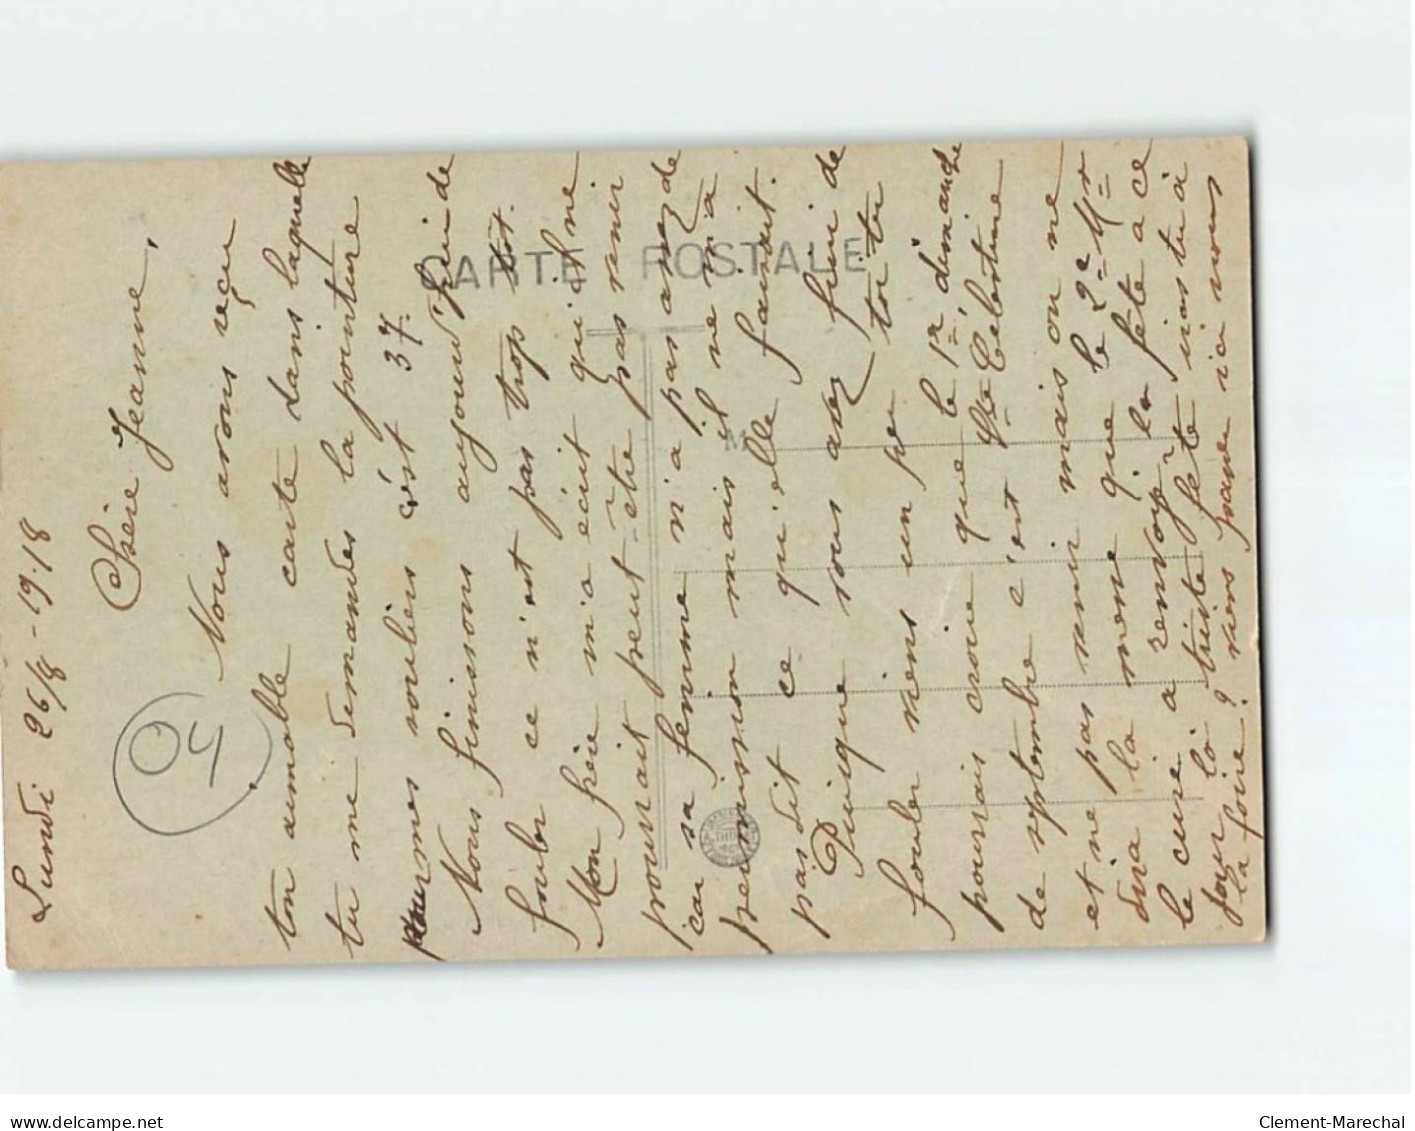 Lundi 26/8-1918
Chère Jeanne,
Nous avons reçu
ton aimable carte dans laquelle
tu me demandes la pointure
mes souliers c'est 37.
Nous finissons aujourd'hui de
fouler ce n'est pas trop tôt.
Mon frère m'a écrit qu'il ne
pourrait peut-être pas venir
car sa femme n'a pas assez de
permission mais il ne m'a
pas dit ce qu'elle faisait.
Puisque vous avez fini de
fouler viens un peu toi tu
pourrais croire que le 1r dimanche
de septembre c'est Ste Célestine
et ne pas venir mais on ne
dira la messe que le 2e Mr
le curé a renvoyé la fête à ce
jour là triste fête iras tu à
la foire? viens passer ici vous
04
CARTE POSTALE
M
Clement-Marechal